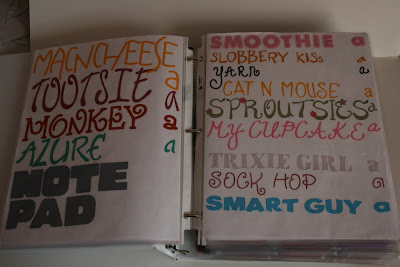 MACNCHEESE a
TOOTSIE a
MONKEY a
AZURE a
NOTE
PAD
SMOOTHIE a
SLOBBERY KISS a
YARN a
CAT N MOUSE a
SPROUTSIES a
MY CUPCAKE a
TRIXIE GIRL a
SOCK HOP a
SMART GUY a